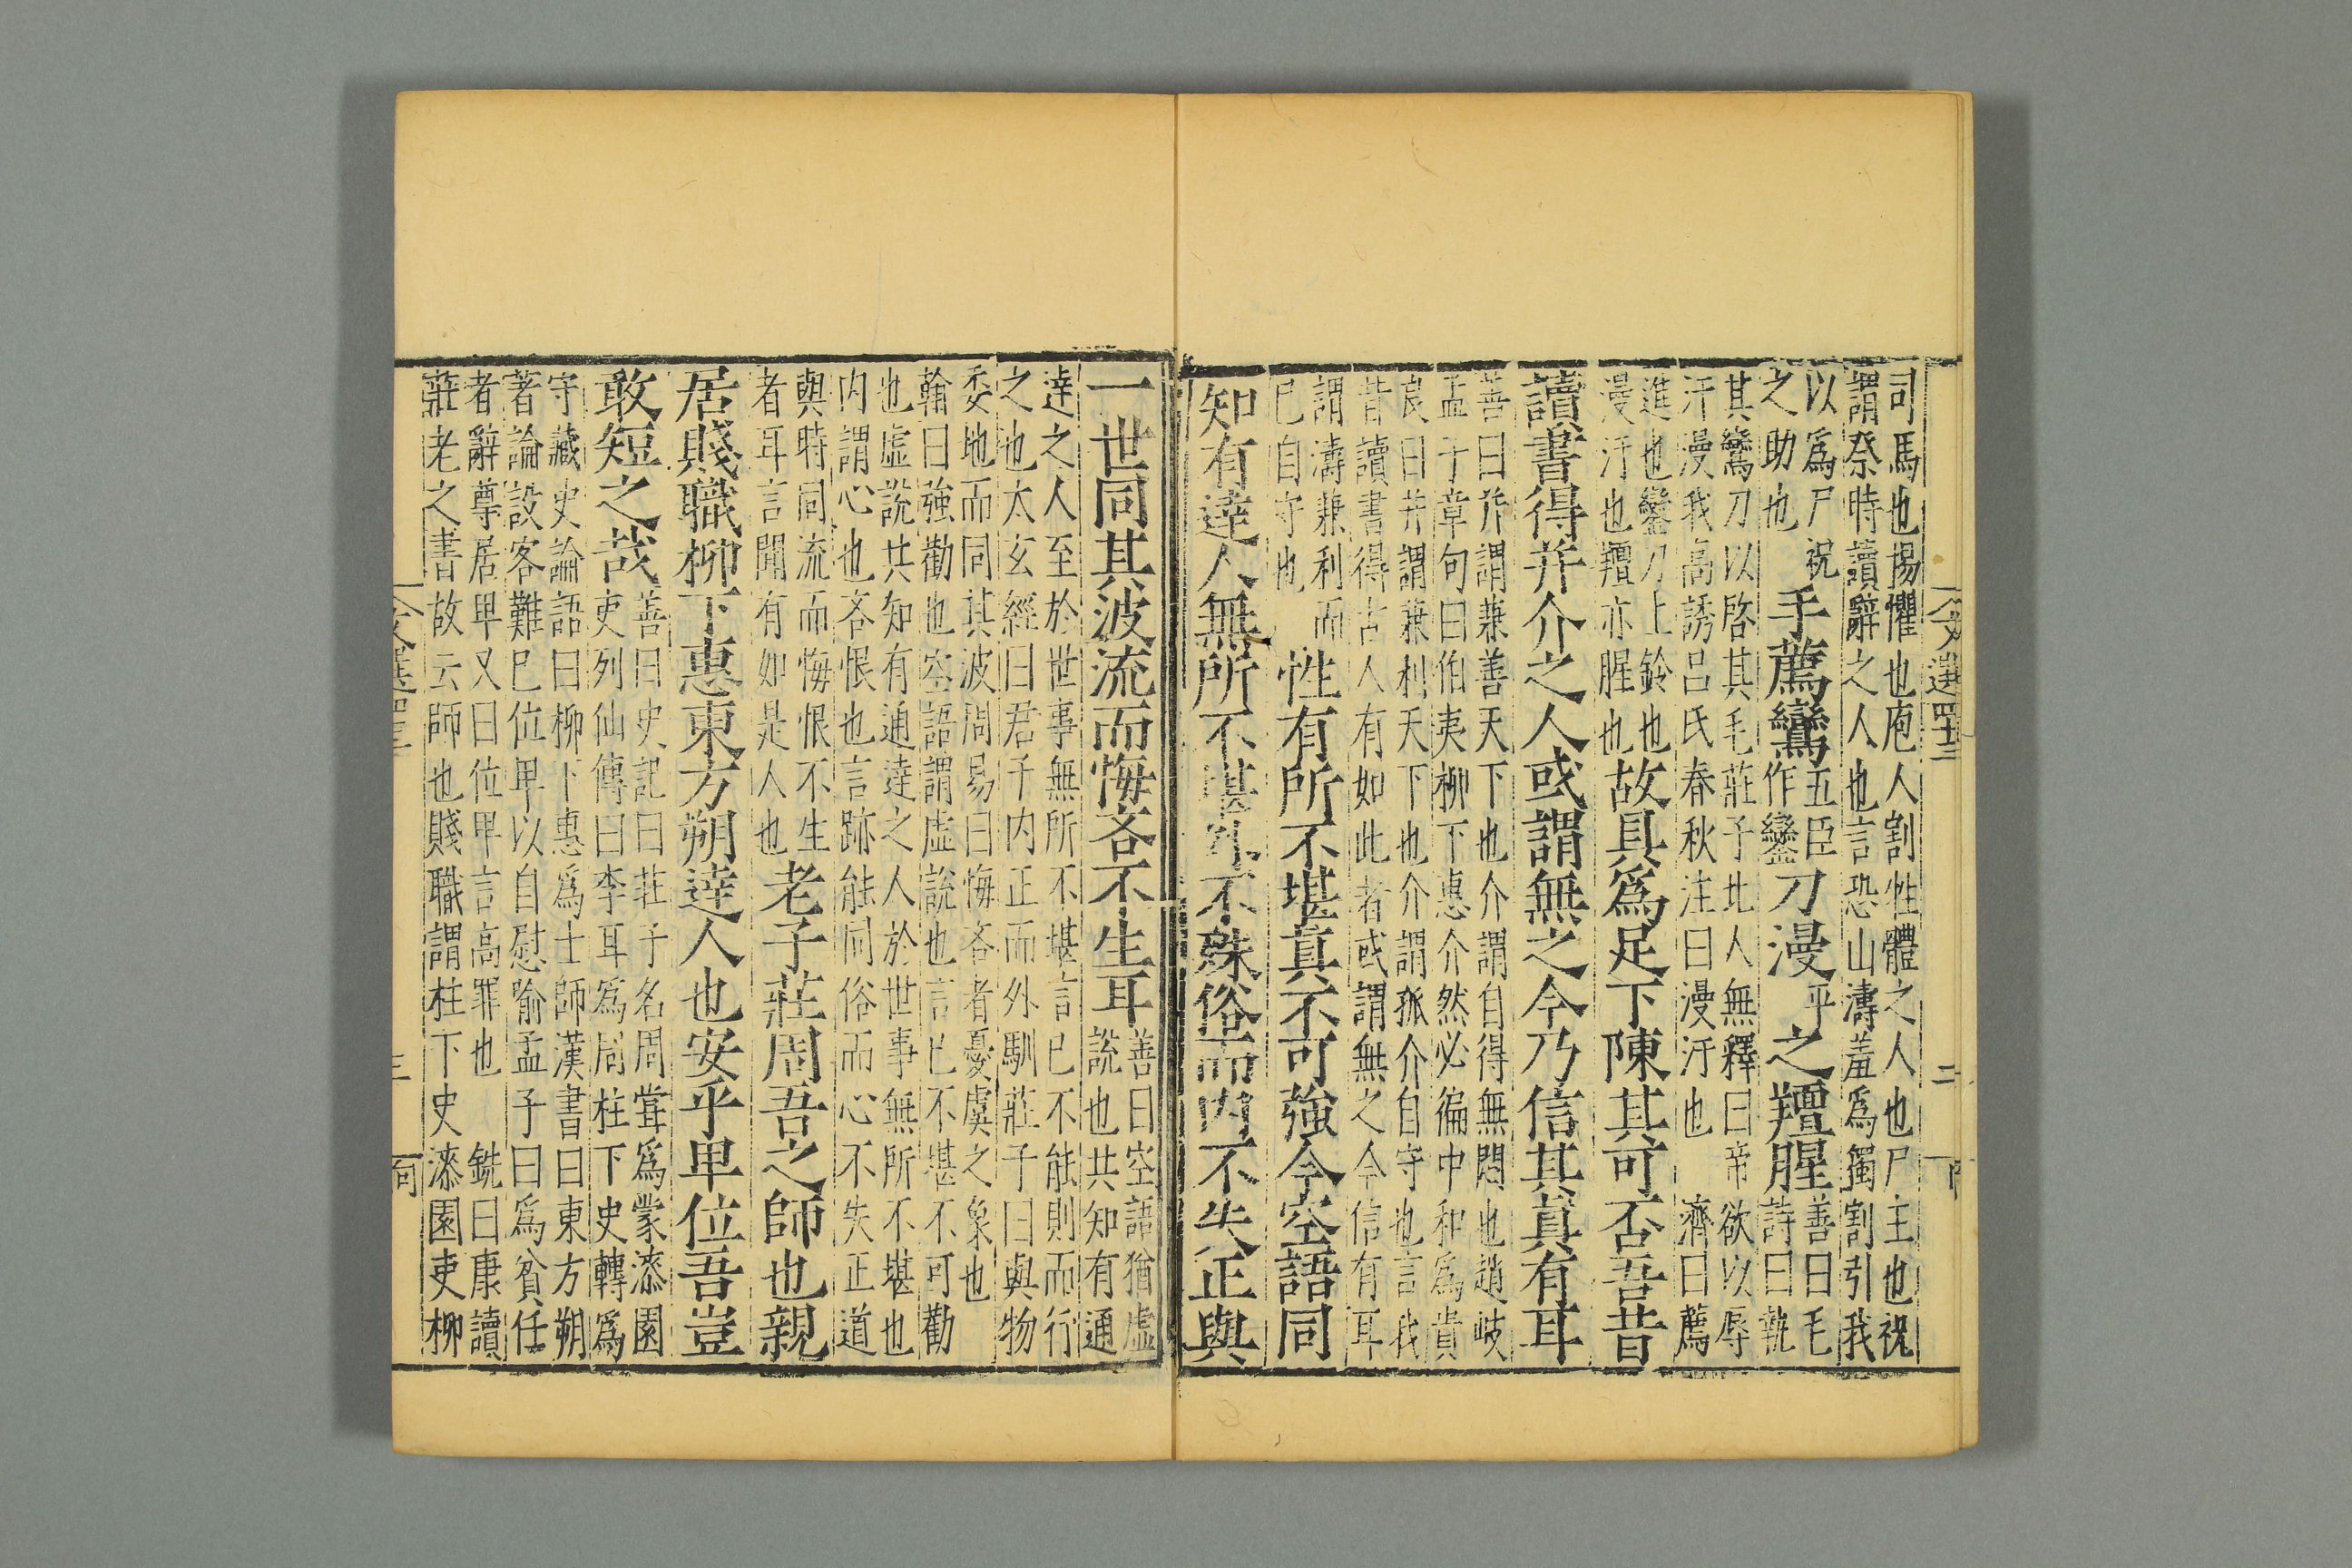 文選四十三
二
司馬也惕懼也庖人割牲體之人也尸主也祝
謂祭時讀辭之人也言恐山濤羞爲獨割引我
以爲尸祝
之助也
手薦鸞
五臣
作鑾
刀漫
平
之羶腥
善曰毛
詩曰執
其鸞刀以啓其毛莊子北人無釋曰帝欲以辱
汙漫我高誘呂氏春秋注曰漫汙也 濟曰薦
進也鑾刀上鈴也
漫汙也羶亦腥也
故具爲足下陳其可否吾昔
讀書得并介之人或謂無之今乃信其真有耳
善曰并謂兼善天下也介謂自得無悶也趙岐
孟子章句曰伯夷柳下惠介然必徧中和爲貴
良曰并謂兼利天下也介謂孤介自守也言我
昔讀書得古人有如此者或謂無之今信有耳
謂濤兼利而
己自守也
性有所不堪真不可強今空語同
知有達人無所不堪外不殊俗而內不失正與
一世同其波流而悔吝不生耳
善曰空語猶虛
說也共知有通
達之人至於世事無所不堪言己不能則而行
之也太玄經曰君子內正而外馴莊子曰與物
委地而同其波周易曰悔吝者憂虞之象也
翰曰強勸也空語謂虛說也言己不堪不可勸
也虛說共知有通達之人於世事無所不堪也
內謂心也吝恨也言跡能同俗而心不失正道
與時同流而悔恨不生
者耳言聞有如是人也
老子莊周吾之師也親
居賤職柳下惠東方朔達人也安乎卑位吾豈
敢短之哉
善曰史記曰莊子名周嘗爲蒙漆園
吏列仙傳曰李耳爲周柱下史轉爲
守藏史論語曰柳下惠爲士師漢書曰東方朔
著論設客難己位卑以自慰喻孟子曰爲貧任
者辭尊居卑又曰位卑言高罪也 銑曰康讀
莊老之書故云師也賤職謂柱下史漆園吏柳
文選四十三
三